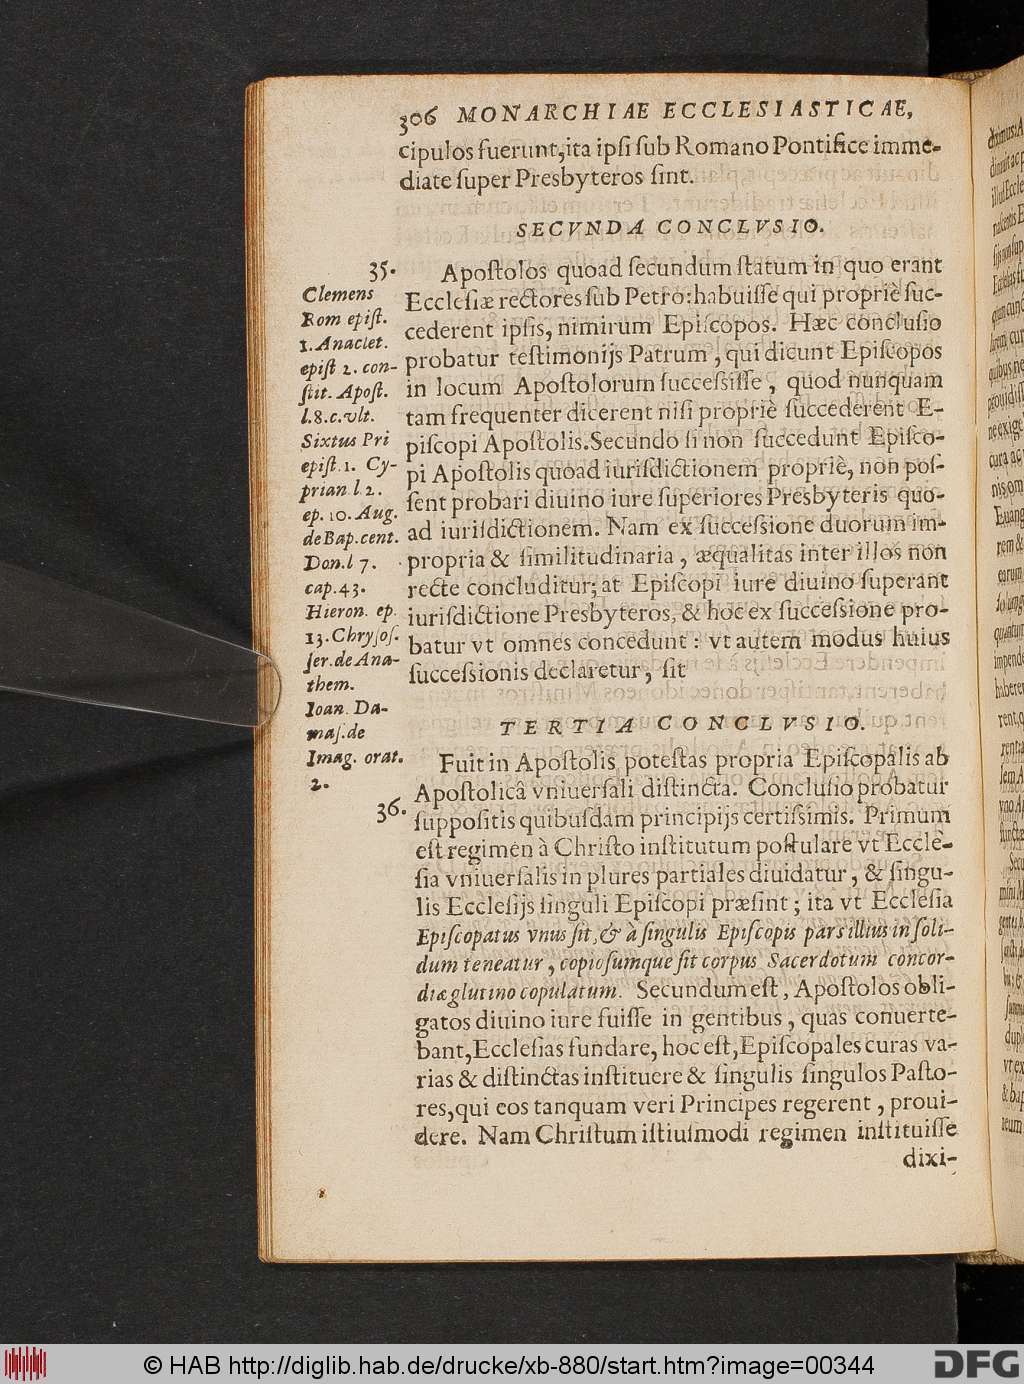 306 MONARCHIAE ECCLESIASTICAE,
cipulos fuerunt,ita ipſi ſub Romano Pontifice imme-
diate ſuper Presbyteros ſint.
SECVNDA CONCLVSIO.
35.
Apoſtolos quoad ſecundum ſtatum in quo erant
Eccleſiæ rectores ſub Petro: habuiſſe qui propriè ſuc-
cederent ipſis, nimirum Epiſcopos. Hæc concluſio
probatur teſtimonijs Patrum, qui dicunt Epiſcopos
in locum Apoſtolorum ſucceſsiſſe, quod nunquam
tam frequenter dicerent niſi propriè ſuccederent E-
piſcopi Apoſtolis. Secundo ſi non ſuccedunt Epiſco-
pi Apoſtolis quoad iuriſdictionem propriè, non poſ-
ſent probari diuino iure ſuperiores Presbyteris quo-
ad iuriſdictionem. Nam ex ſucceſsione duorum im-
propria & ſimilitudinaria, æqualitas inter illos non
recte concluditur; at Epiſcopi iure diuino ſuperant
iuriſdictione Presbyteros, & hoc ex ſucceſsione pro-
batur vt omnes concedunt: vt autem modus huius
ſucceſsionis declaretur, ſit
Clemens
Rom epiſt.
1. Anaclet.
epiſt 2. con-
ſtit. Apoſt.
l.8.c.vlt.
Sixtus Pri
epiſt.1. Cy-
prian l.2.
ep. 10. Aug.
de Bap.cent.
Don.l 7.
cap.43.
Hieron. ep.
13. Chryſoſ.
ſer. de Ana-
them.
Ioan. Da-
maſ. de
Imag. orat.
2.
TERTIA CONCLVSIO.
36.
Fuit in Apoſtolis poteſtas propria Epiſcopalis ab
Apoſtolicâ vniuerſali diſtincta. Concluſio probatur
ſuppoſitis quibuſdam principijs certiſsimis. Primum
eſt regimen à Chriſto inſtitutum poſtulare vt Eccle-
ſia vniuerſalis in plures partiales diuidatur, & ſingu-
lis Eccleſijs ſinguli Epiſcopi præſint; ita vt Eccleſia
Epiſcopatus vnus ſit, & à ſingulis Epiſcopis pars illius in ſoli-
dum teneatur, copioſumque ſit corpus Sacerdotum concor-
diæ glutino copulatum. Secundum eſt, Apoſtolos obli-
gatos diuino iure fuiſſe in gentibus, quas conuerte-
bant, Eccleſias fundare, hoc eſt, Epiſcopales curas va-
rias & diſtinctas inſtituere & ſingulis ſingulos Paſto-
res, qui eos tanquam veri Principes regerent, proui-
dere. Nam Chriſtum iſtiuſmodi regimen inſtituiſſe
dixi-
© HAB http://diglib.hab.de/drucke/xb-880/start.htm?image=00344
DFG